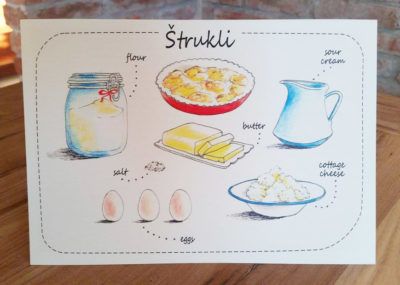 Štrukli
flour
sour
cream
butter
salt
cottage
cheese
eggs